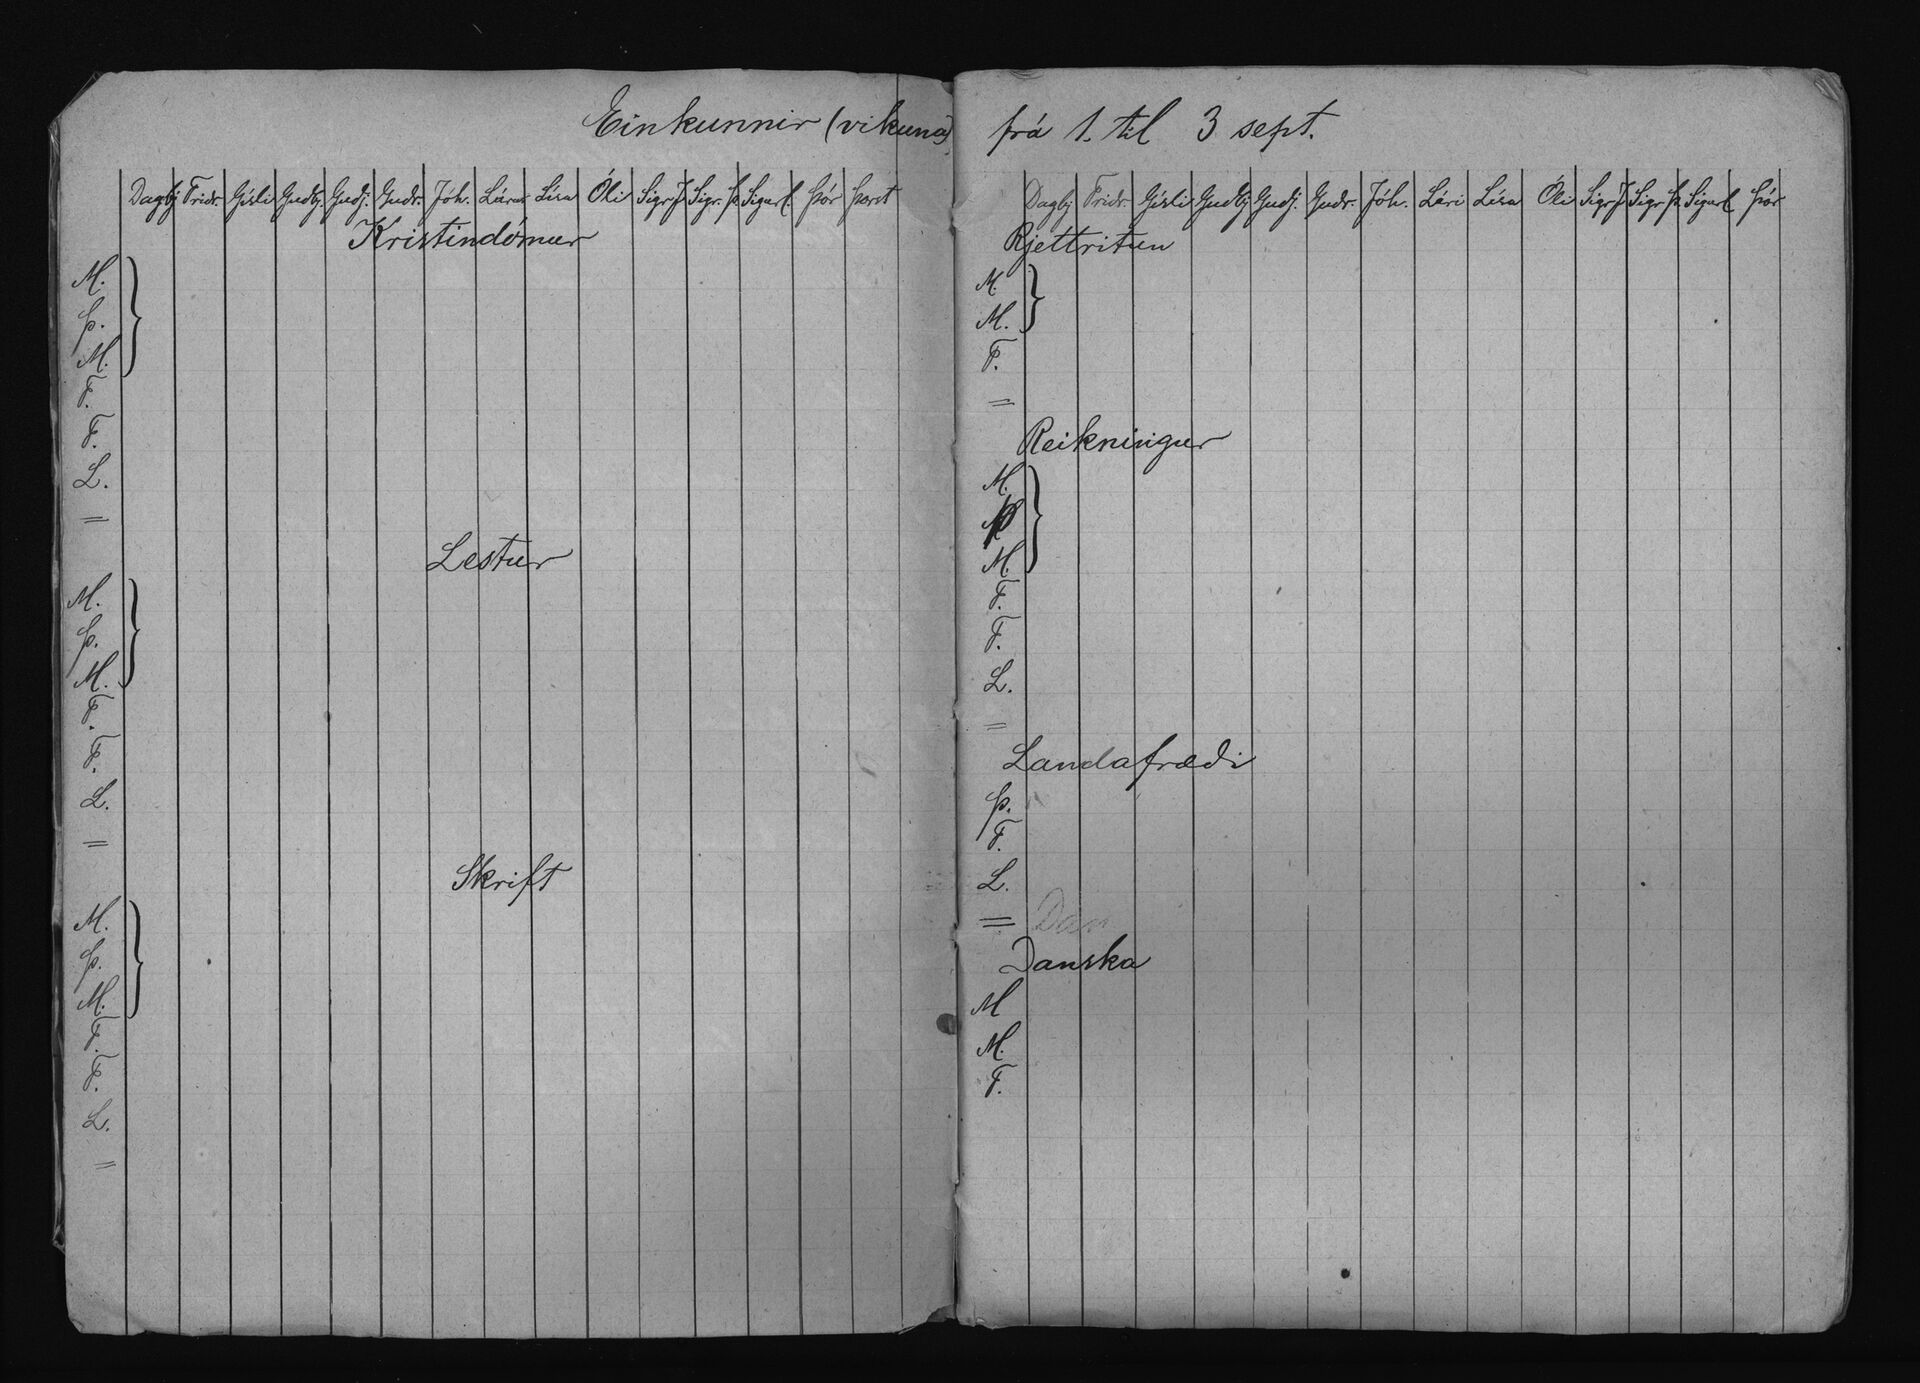 Einkunnir (vikuna) frá 1. til 3 sept.
Dagbj Fridr. Gísli Gudbj. Gudj. Gudr. Jóh. Lárus Lísa Óli Sigr J Sigr. Þ. Sigurl. Þór Þorst
Kristindómur
M.
Þ.
M.
F.
F.
L.
=
Lestur
M.
Þ.
M.
F.
F.
L.
=
Skrift
M.
Þ.
M.
F.
F.
L.
=
Dagbj Fridr. Gísli Gudbj Gudj. Gudr. Jóh. Lári Lísa Óli Sigr J Sigr Þ. Sigurl Þór
Rjettritun
M.
M.
F.
=
Reikningur
M.
Þ
M.
F.
F.
L.
=
Landafrædi
Þ.
F.
L.
= Dan
Danska
M
M.
F.